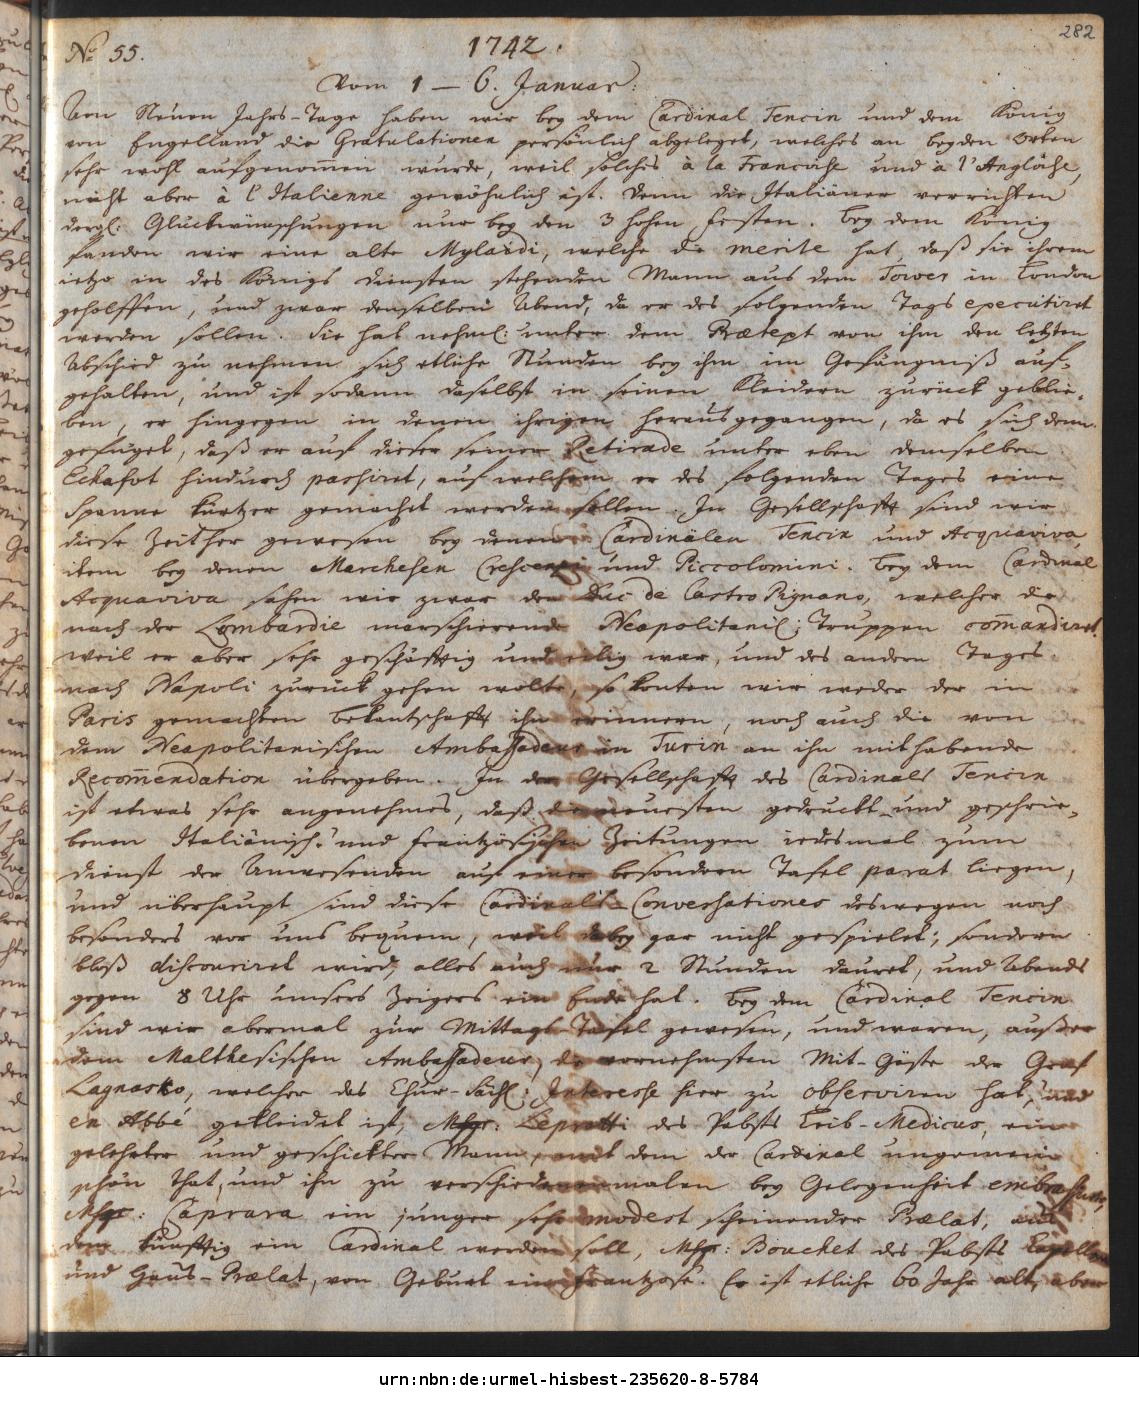 282
No. 55.
1742.
Vom 1 — 6. Januar.
Am Neuen Jahrs-Tage haben wir bey dem Cardinal Tencin und dem König
von Engelland die Gratulationen persönlich abgeleget, welches an beyden Orten
sehr wohl aufgenom̄en wurde, weil solches à la Francoise und à l'Angloise,
nicht aber à l'Italienne gewöhnlich ist. Denn die Italiäner verrichten
dergl: Glückwünschungen nur bey den 3 hohen Festen. Bey dem König
fanden wir eine alte Mylaidi, welche die merite hat, daß sie ihrem
ietzo in des Königs Diensten stehenden Mann aus dem Tower in London
geholffen, und zwar denselben Abend, da er des folgenden Tags executiret
werden sollen. Sie hat nehml: unter dem Prætext von ihm den letzten
Abschied zu nehmen sich etliche Stunden bey ihm im Gefängniß auf-
gehalten, und ist sodann daselbst in seinen Kleidern zurück geblie-
ben, er hingegen in denen ihrigen herausgegangen, da es sich denn
gefüget, daß er auf dieser seiner Retirade unter eben demselben
Echafot hindurch passiret, auf welchem er des folgenden Tages eine
Spanne kürtzer gemacht werden sollen. In Gesellschafft sind wir
diese Zeither gewesen bey denen Cardinälen Tencin und Acquaviva,
item bey denen Marchesen Crescenzi und Piccolomini. Bey dem Cardinal
Acquaviva sahen wir zwar den Duc de Castro Pignano, welcher die
nach der Lombardie marschierende Neapolitanil: Truppen com̄andiret.
weil er aber sehr geschäfftig und eilig war, und des andern Tages
nach Napoli zurück gehen wolte, so konten wir weder der in
Paris gemachten bekantschafft ihn erinnern, noch auch die von
dem Neapolitanischen Ambassadeur in Turin an ihn mithabende
Recom̄endation übergeben. In der Gesellschafft des Cardinals Tencin
ist etwas sehr angenehmes, daß die neuesten gedruckt und geschrie-
benen Italiänisch: und frantzösischen Zeitungen iedesmal zum
Dienst der Anwesenden auf einer besondern Tafel parat liegen,
und überhaupt sind diese Cardinals-Conversationes deswegen noch
besonders vor uns bequem, weil dabey gar nicht gespielet, sondern
bloß discouriret wird, alles auch nur 2 Stunden dauret, und Abends
gegen 8 Uhr unsers Zeigers ein Ende hat. Bey dem Cardinal Tencin
sind wir abermal zur Mittags-Tafel gewesen, und waren, außer
dem Malthesischen Ambassadeur, die vornehmsten Mit-Gäste der Graf
Lagnasko, welcher des Chur-Sächs: Interesse hier zu observiren hat, und
en Abbé gekleidet ist, Msgr: Leprotti des Pabsts Leib-Medicus, ein
gelehrter und geschickter Mann, mit dem der Cardinal ungemein
schön that, und ihn zu verschiedenenmalen bey Gelegenheit embrassirte,
Msgr: Caprara ein junger sehr modest scheinender Prælat, aus
dem künfftig ein Cardinal werden soll, Msgr: Bouchet des Pabsts Capellan
und Haus-Prælat, von Geburt ein Frantzose. Er ist etliche 60 Jahr alt, aber
urn:nbn:de:urmel-hisbest-235620-8-5784